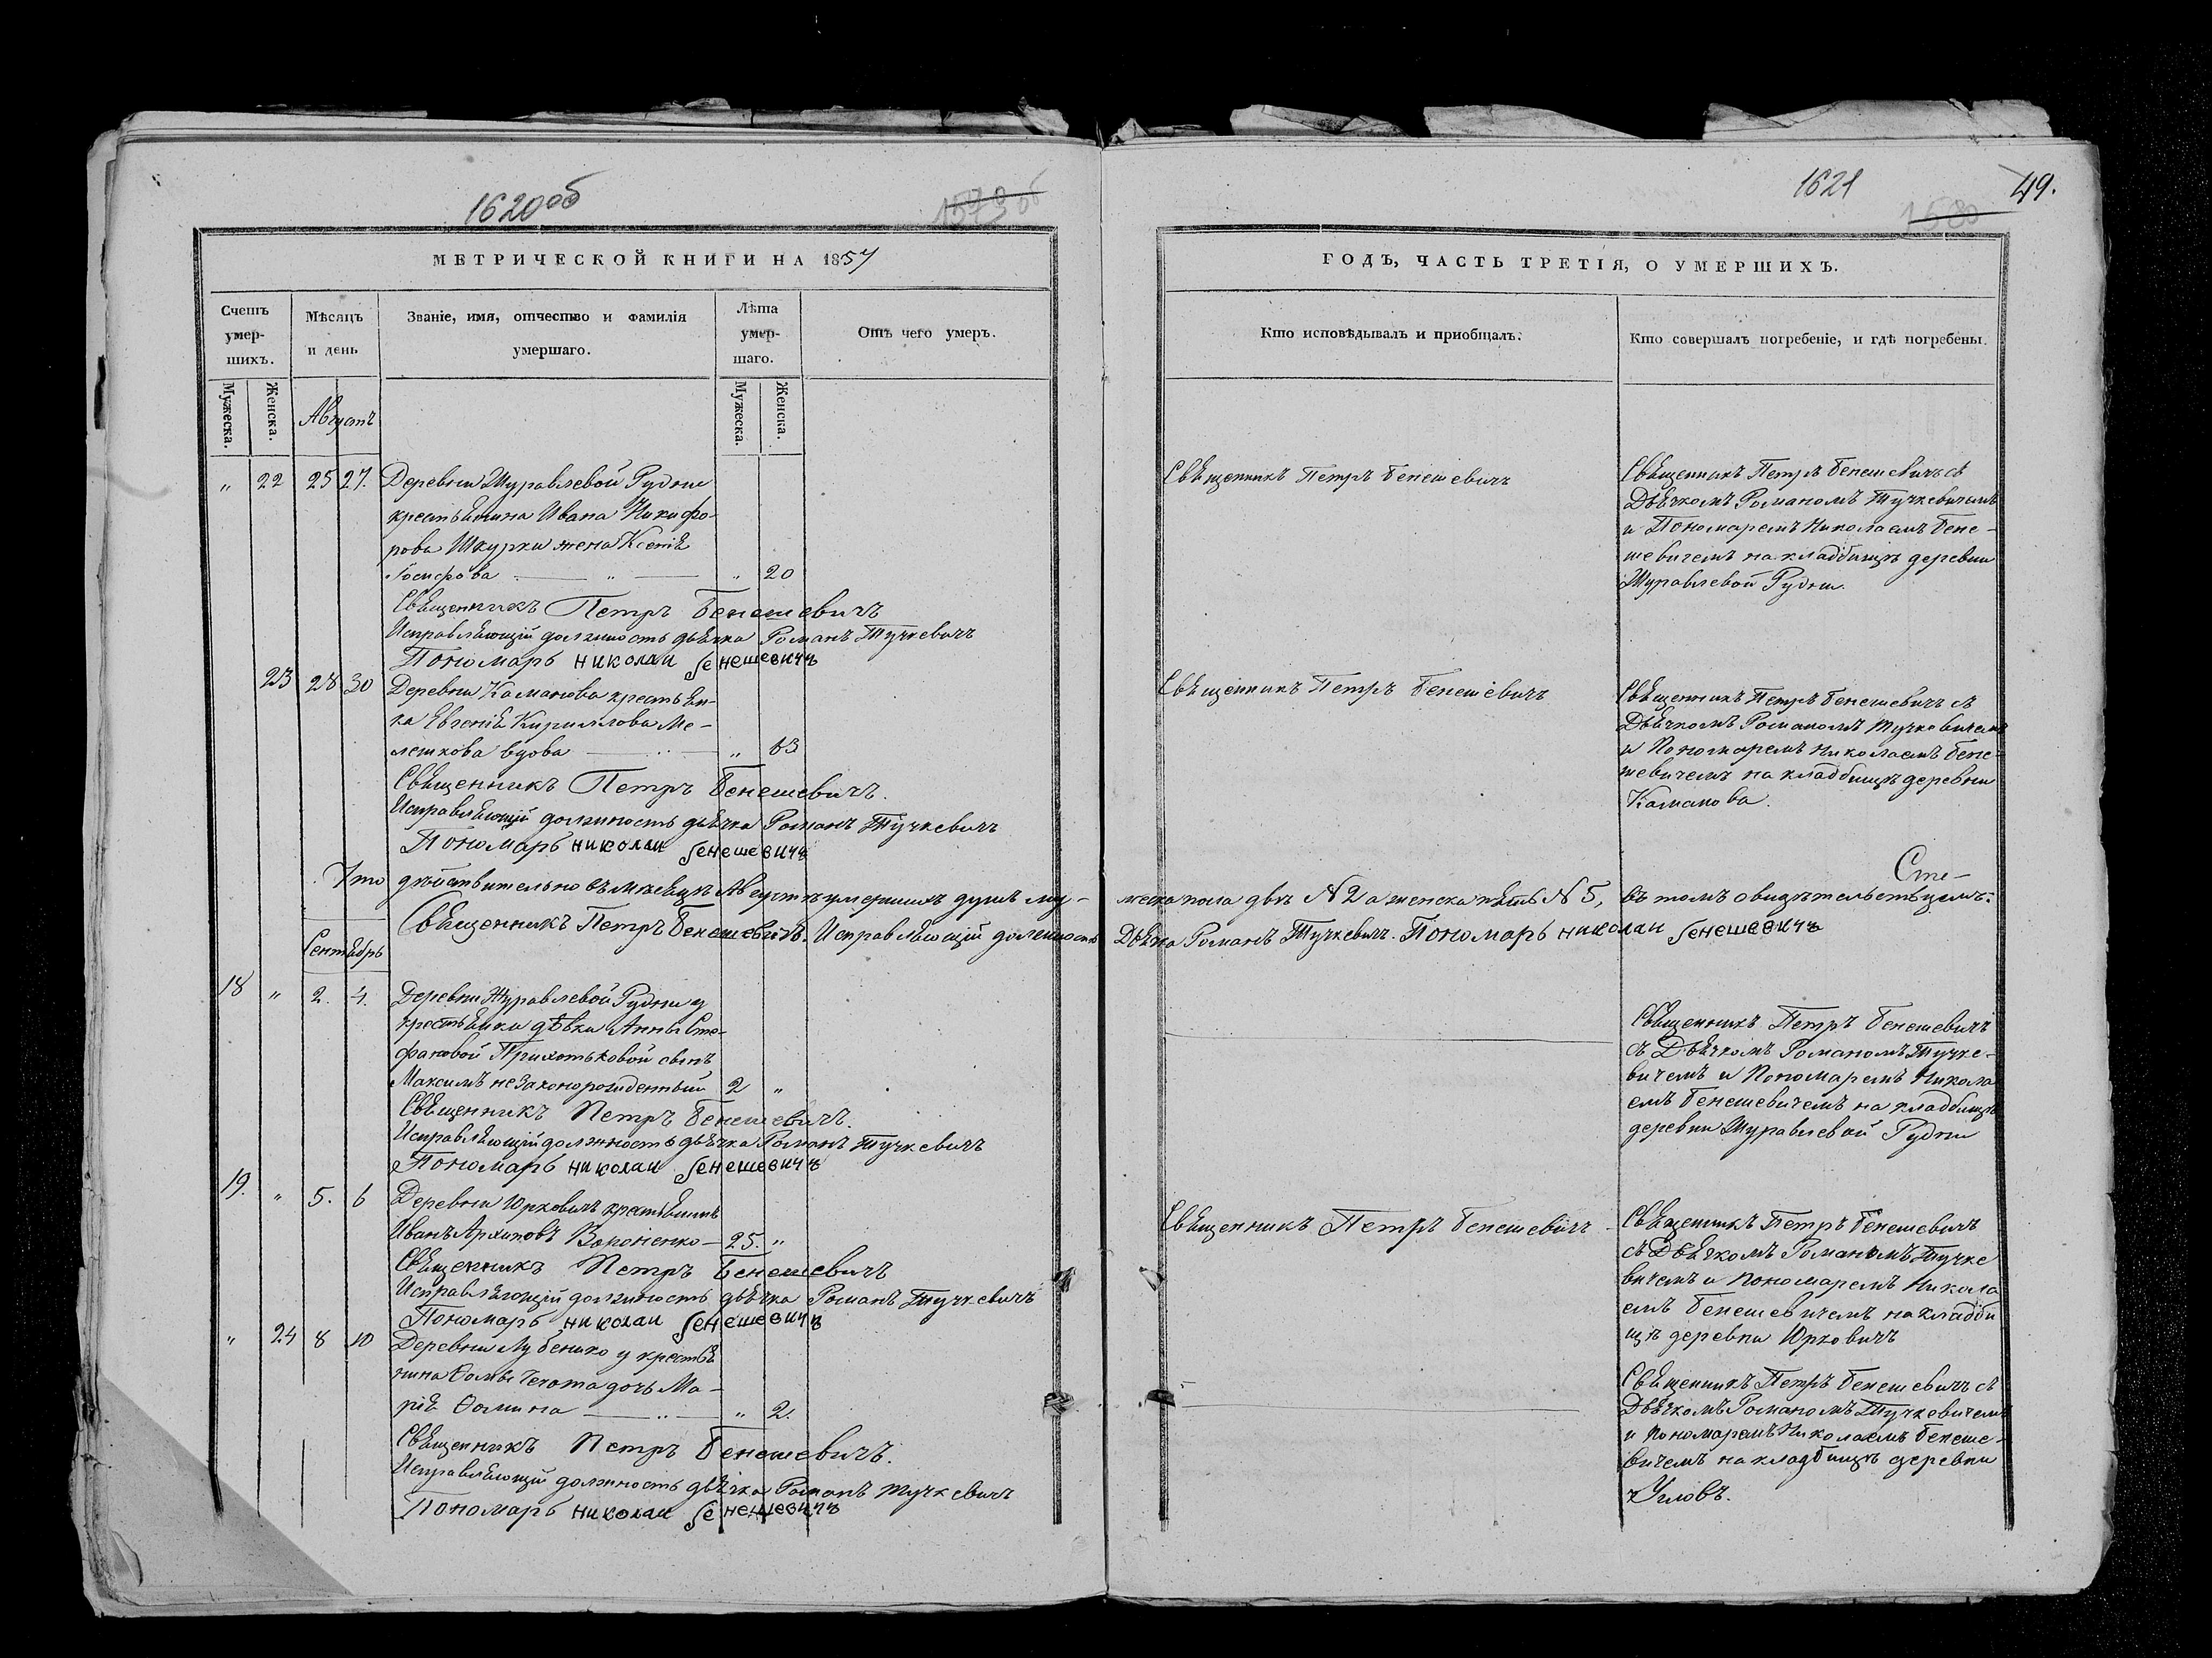 1620об
1579об
МЕТРИЧЕСКОЙ КНИГИ НА 1857
Счетъ умер-шихъ.
Мѣсяцъ и день
Званіе, имя, отчество и фамилія умершаго.
Лѣта умер-шаго.
Отъ чего умеръ.
Мужеска.
Женска.
Августъ
Мужеска.
Женска.
" 22 25 27. Деревни Журавлевой Рудни
крестьянина Ивана Никифо-
рова Шкурки жена Ксенія
Іосифова — " — " 20
Священникъ Петръ Бенешевичъ
Исправляющій должность дьячка Романъ Тучкевичъ
Пономарь николаи Бенешевичъ
23 28 30 Деревни Каманова крестьян-
ка Евгенія Кириллова Ме-
лешкова вдова — " — " 83
Священникъ Петръ Бенешевичъ.
Исправляющій должность дьячка Романъ Тучкевичъ
Пономарь николаи Бенешевичъ
Что дѣйствительно въ мѣсяцѣ Августѣ умершихъ душъ му-
Священникъ Петръ Бенешевичъ. Исправляющій должность
Сентябрь
18 " 2. 4. Деревни Журавлевой Рудни у
крестьянки дѣвки Анны Сте-
фановой Прихотьковой сынъ
Максимъ незаконорожденный 2 "
Священникъ Петръ Бенешевичъ.
Исправляющій должность дьячка Романъ Тучкевичъ
Пономарь николаи Бенешевичъ
19. " 5. 6 Деревни Юрковичъ крестьянинъ
Иванъ Архиповъ Вороненко — 25. "
Священникъ Петръ Бенешевичъ
Исправляющій должность дьячка Романъ Тучкевичъ
Пономарь николаи Бенешевичъ
" 24 8 10 Деревни у крестья
нина Ѳомы дочь Ма-
рія Ѳомина — " — " 2.
Священникъ Петръ Бенешевичъ.
Исправляющій должность дьячка Романъ Тучкевичъ
Пономарь николаи Бенешевичъ
1621
49.
1580
ГОДЪ, ЧАСТЬ ТРЕТІЯ, О УМЕРШИХЪ.
Кто исповѣдывалъ и приобщалъ.
Кто совершалъ погребеніе, и гдѣ погребены.
Священникъ Петръ Бенешевичъ
Священникъ Петръ Бенешевичъ съ
Дьячкомъ Романомъ Тучкевичемъ
и Пономаремъ Николаемъ Бене-
шевичемъ на кладбищѣ деревни
Журавлевой Рудни.
Священникъ Петръ Бенешевичъ
Священникъ Петръ Бенешевичъ съ
Дьячкомъ Романомъ Тучкевичемъ
и Пономаремъ Николаемъ Бене-
шевичемъ на кладбищѣ деревни
Каманова.
жеска пола двѣ №2 а женска пять №5, въ томъ свидѣтельствуемъ.
Дьячка Романъ Тучкевичъ. Пономарь николаи Бенешевичъ
Священникъ Петръ Бенешевичъ
съ Дьячкомъ Романомъ Тучке-
вичемъ и Пономаремъ Никола
емъ Бенешевичемъ на кладбищѣ
деревни Журавлевой Рудни
Священникъ Петръ Бенешевичъ
Священникъ Петръ Бенешевичъ
съ Дьячкомъ Романомъ Тучке
вичемъ и Пономаремъ Никола
емъ Бенешевичемъ на кладби
щѣ деревни Юрковичъ
Священникъ Петръ Бенешевичъ съ
Дьячкомъ Романомъ Тучкевичемъ
и Пономаремъ Николаемъ Бенеше-
вичемъ на кладбищѣ деревни
Угловъ.